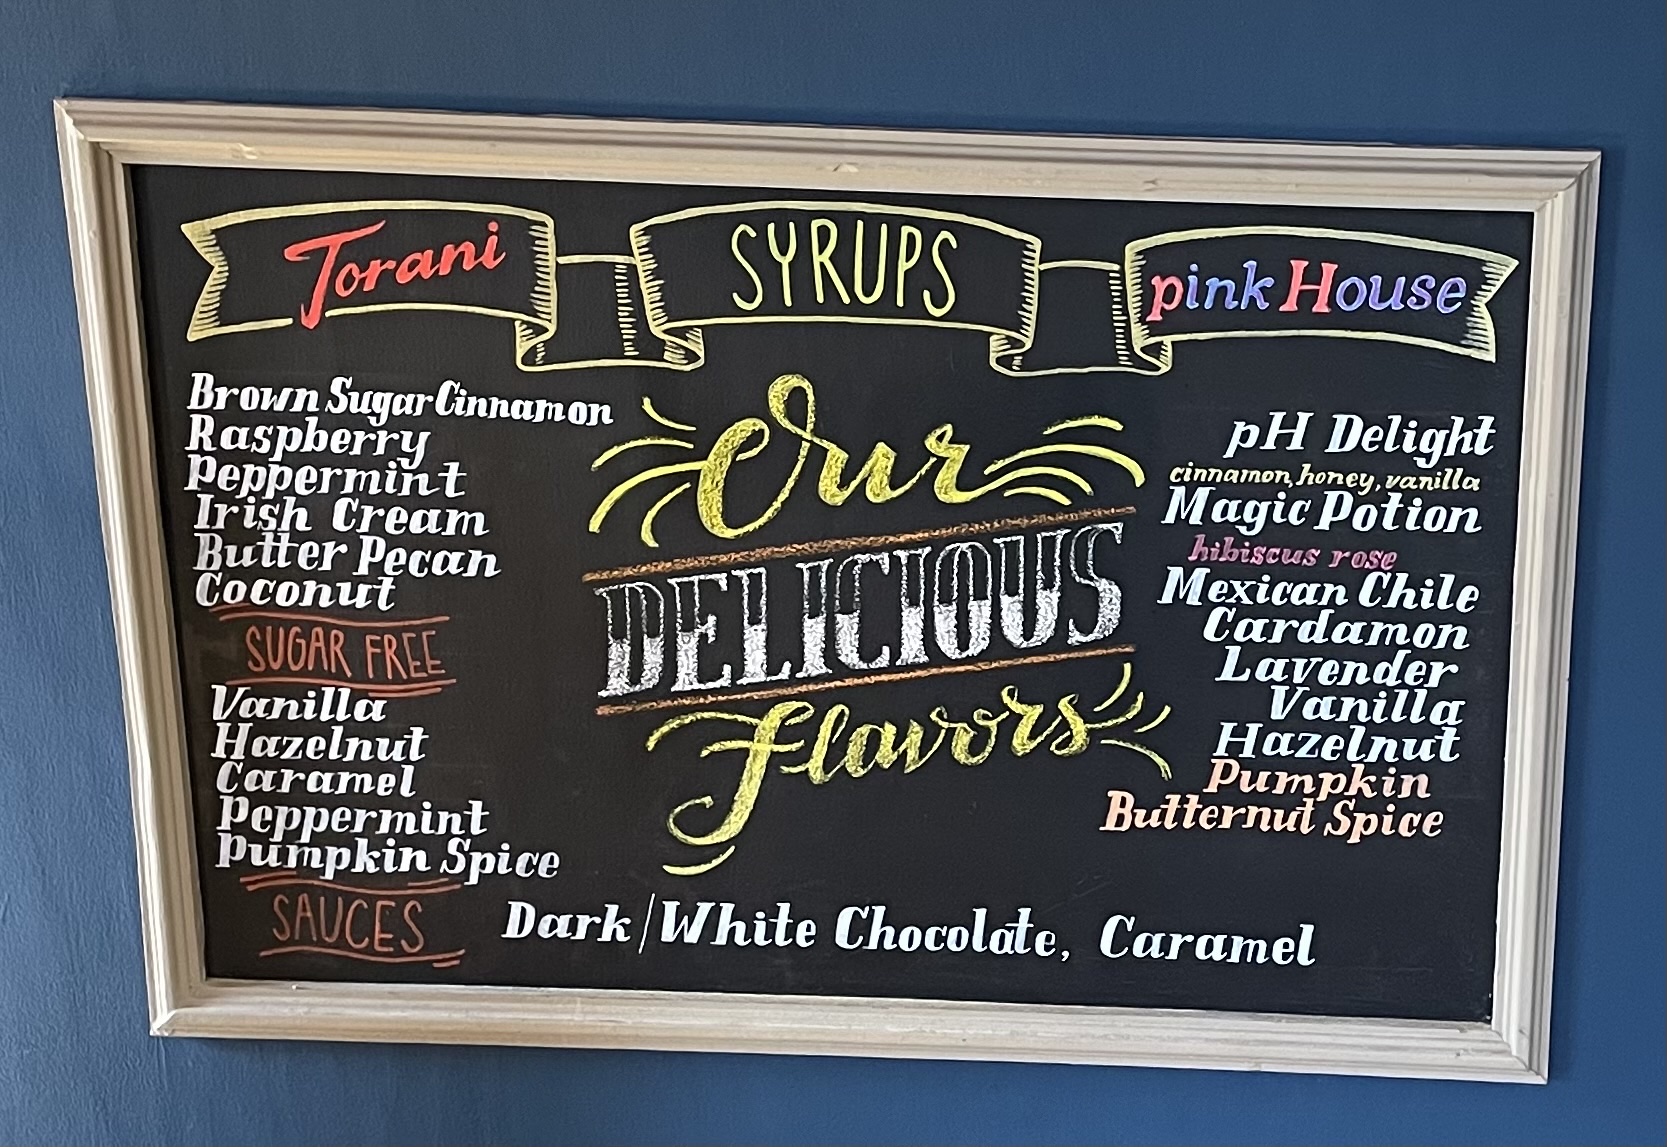 Torani
SYRUPS
pink House
Brown Sugar Cinnamon
Raspberry
Peppermint
Irish Cream
Butter Pecan
Coconut
SUGAR FREE
Vanilla
Hazelnut
Caramel
Peppermint
Pumpkin Spice
Our
DELICIOUS
Flavors
pH Delight
cinnamon, honey, vanilla
Magic Potion
hibiscus rose
Mexican Chile
Cardamon
Lavender
Vanilla
Hazelnut
Pumpkin
Butternut Spice
SAUCES
Dark/White Chocolate, Caramel